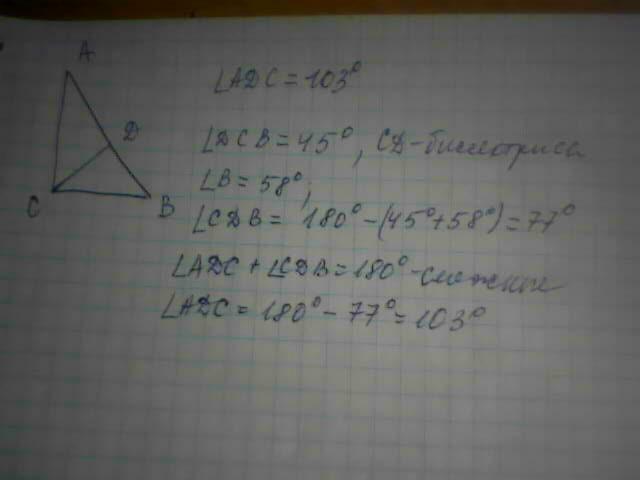 A
D
C
B
∠ADC = 103°
∠DCB = 45°, CD - биссектриса
∠B = 58°;
∠CDB = 180° - (45° + 58°) = 77°
∠ADC + ∠CDB = 180° - смежные
∠ADC = 180° - 77° = 103°